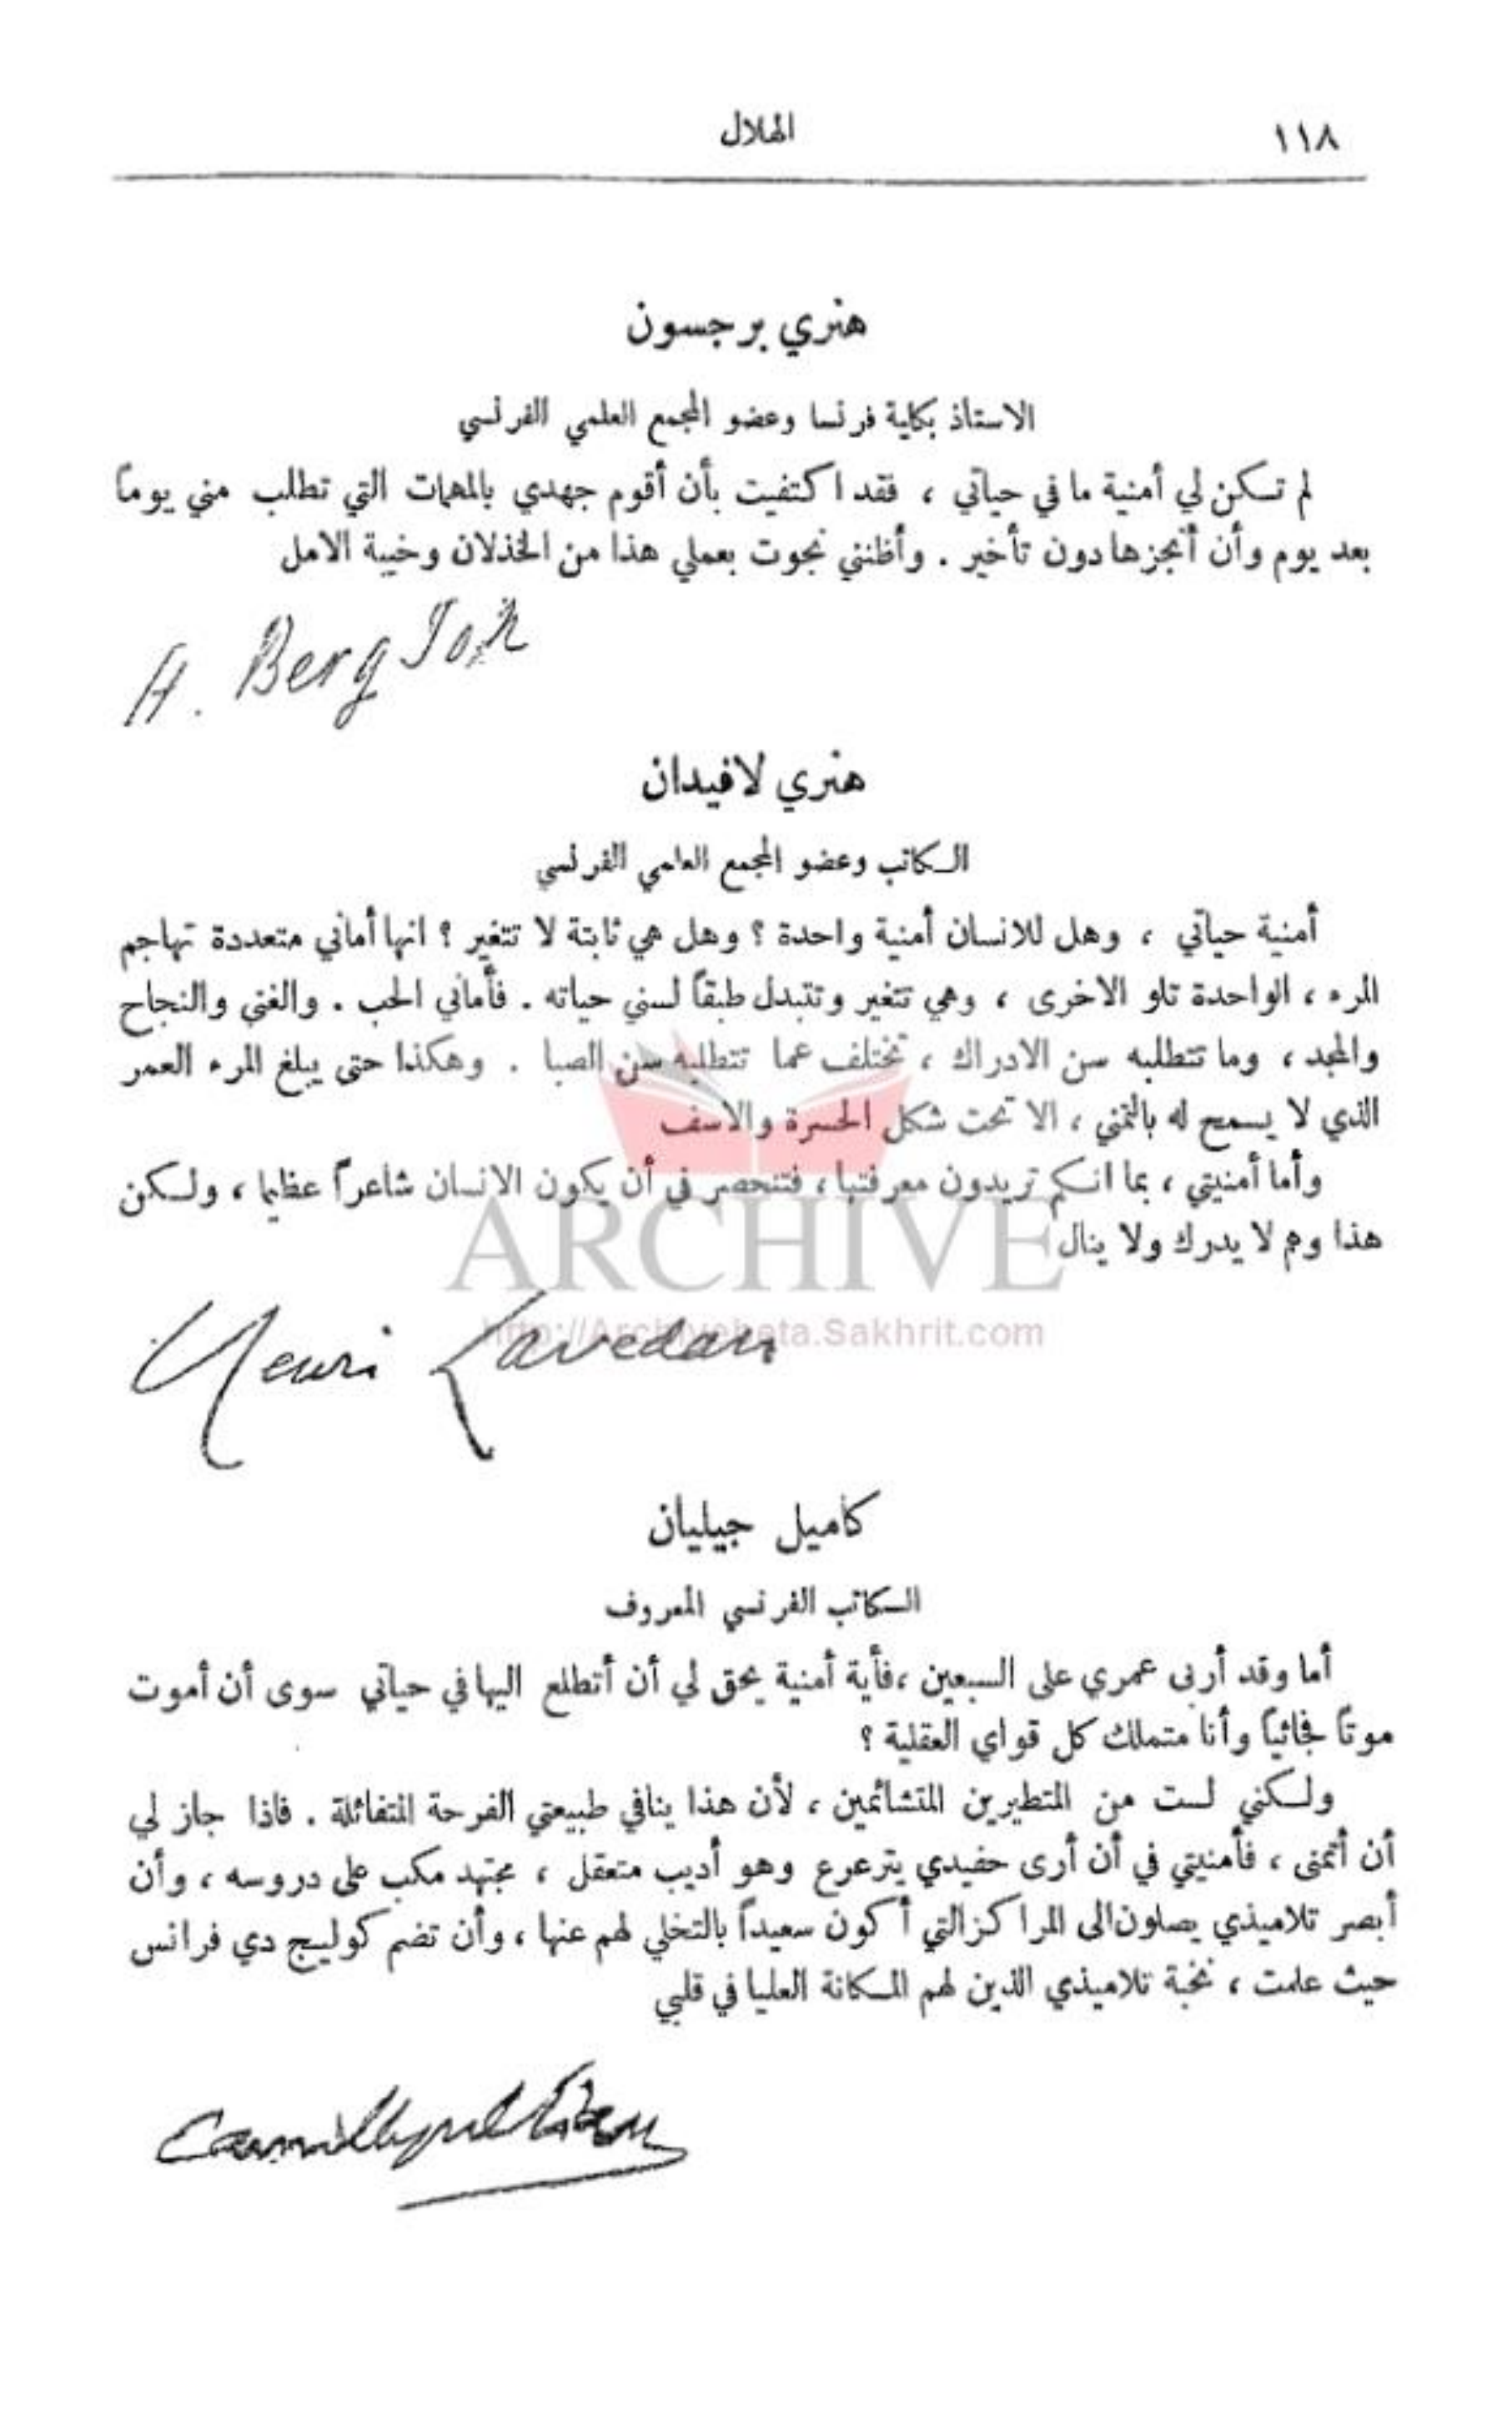 ١١٨
الهلال
هنري برجسون
الاستاذ بكلية فرنسا وعضو المجمع العلمي الفرنسي
لم تكن لي أمنية ما في حياتي ، فقد اكتفيت بأن أقوم جهدي بالمهمات التي تطلب مني يوماً
بعد يوم وأن أنجزها دون تأخير . وأظنني نجوت بعملي هذا من الخذلان وخيبة الامل
H. Bergson
هنري لافيدان
الكاتب وعضو المجمع العلمي الفرنسي
أمنية حياتي ، وهل للانسان أمنية واحدة ؟ وهل هي ثابتة لا تتغير ؟ انها أماني متعددة تهاجم
المرء ، الواحدة تلو الاخرى ، وهي تتغير وتتبدل طبقاً لسني حياته . فأماني الحب . والغنى والنجاح
والمجد ، وما تتطلبه سن الادراك ، تختلف عما تتطلبه سن الصبا . وهكذا حتى يبلغ المرء العمر
الذي لا يسمح له بالتمني ، الا تحت شكل الحسرة والاسف
وأما أمنيتي ، بما انكم تريدون معرفتها ، فتنحصر في أن يكون الانسان شاعراً عظيما ، ولكن
هذا وهم لا يدرك ولا ينال
ARCHIVE
http://Archivebeta.Sakhrit.com
Henri Lavedan
كاميل جيليان
الكاتب الفرنسي المعروف
أما وقد أربى عمري على السبعين ، فأية أمنية يحق لي أن أتطلع اليها في حياتي سوى أن أموت
موتاً فجائياً وأنا متملك كل قواي العقلية ؟
ولكني لست من المتطيرين المتشائمين ، لأن هذا ينافي طبيعتي الفرحة المتفائلة . فاذا جاز لي
أن أتمنى ، فأمنيتي في أن أرى حفيدي يترعرع وهو أديب متعقل ، مجتهد مكب على دروسه ، وأن
أبصر تلاميذي يصلون الى المراكز التي أكون سعيداً بالتخلي لهم عنها ، وأن تضم كوليج دي فرانس
حيث علمت ، نخبة تلاميذي الذين لهم المكانة العليا في قلبي
Camille Jullian